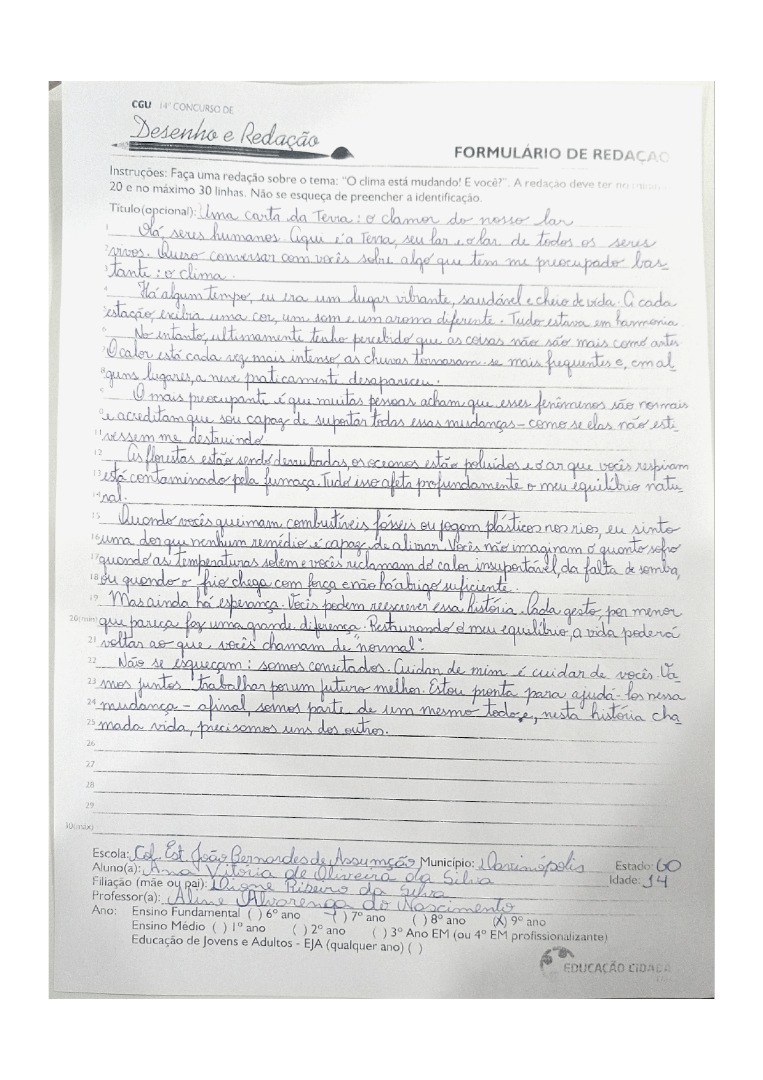 CGU 14º CONCURSO DE
Desenho e Redação
FORMULÁRIO DE REDAÇÃO
Instruções: Faça uma redação sobre o tema: "O clima está mudando! E você?". A redação deve ter no mínimo
20 e no máximo 30 linhas. Não se esqueça de preencher a identificação.
Título(opcional): Uma carta da Terra: o clamor do nosso lar
1 Olá seres humanos. Aqui é a Terra, seu lar e o lar de todos os seres
2 vivos. Quero conversar com vocês sobre algo que tem me preocupado bas-
3 tante: o clima.
4 Há algum tempo, eu era um lugar vibrante, saudável e cheio de vida. A cada
5 estação, exibia uma cor, um som e um aroma diferente. Tudo estava em harmonia.
6 No entanto, ultimamente tenho percebido que as coisas não são mais como antes.
7 O calor está cada vez mais intenso, as chuvas tornaram-se mais frequentes e, em al-
8 guns lugares, a neve praticamente desapareceu.
9 O mais preocupante é que muitas pessoas acham que esses fenômenos são normais
10 e acreditam que sou capaz de suportar todas essas mudanças - como se elas não esti-
11 vessem me destruindo.
12 As florestas estão sendo derrubadas, os oceanos estão poluídos e o ar que vocês respiram
13 está contaminado pela fumaça. Tudo isso afeta profundamente o meu equilíbrio natu-
14 ral.
15 Quando vocês queimam combustíveis fósseis ou jogam plásticos nos rios, eu sinto
16 uma dor que nenhum remédio é capaz de aliviar. Vocês não imaginam o quanto sofro
17 quando as temperaturas sobem e vocês reclamam do calor insuportável, da falta de sombra,
18 ou quando o frio chega com força e não há abrigo suficiente.
19 Mas ainda há esperança. Vocês podem reescrever essa história. Cada gesto, por menor
20(mín) que pareça faz uma grande diferença. Restaurando o meu equilíbrio, a vida poderá
21 voltar ao que vocês chamam de "normal".
22 Não se esqueçam: somos conectados. Cuidar de mim é cuidar de vocês. Va-
23 mos juntos trabalhar por um futuro melhor. Estou pronta para ajudá-los nessa
24 mudança - afinal, somos parte de um mesmo todo e, nesta história cha-
25 mada vida, precisamos uns dos outros.
26
27
28
29
30(máx)
Escola: Col. Est. João Bernardes de Assumção Município: Marcinópolis Estado: GO
Aluno(a): Ana Vitória de Oliveira da Silva Idade: 14
Filiação (mãe ou pai): Dione Ribeiro da Silva
Professor(a): Aline Alvarenga do Nascimento
Ano: Ensino Fundamental ( ) 6º ano ( ) 7º ano ( ) 8º ano (X) 9º ano
Ensino Médio ( ) 1º ano ( ) 2º ano ( ) 3º Ano EM (ou 4º EM profissionalizante)
Educação de Jovens e Adultos - EJA (qualquer ano) ( )
EDUCAÇÃO CIDADÃ